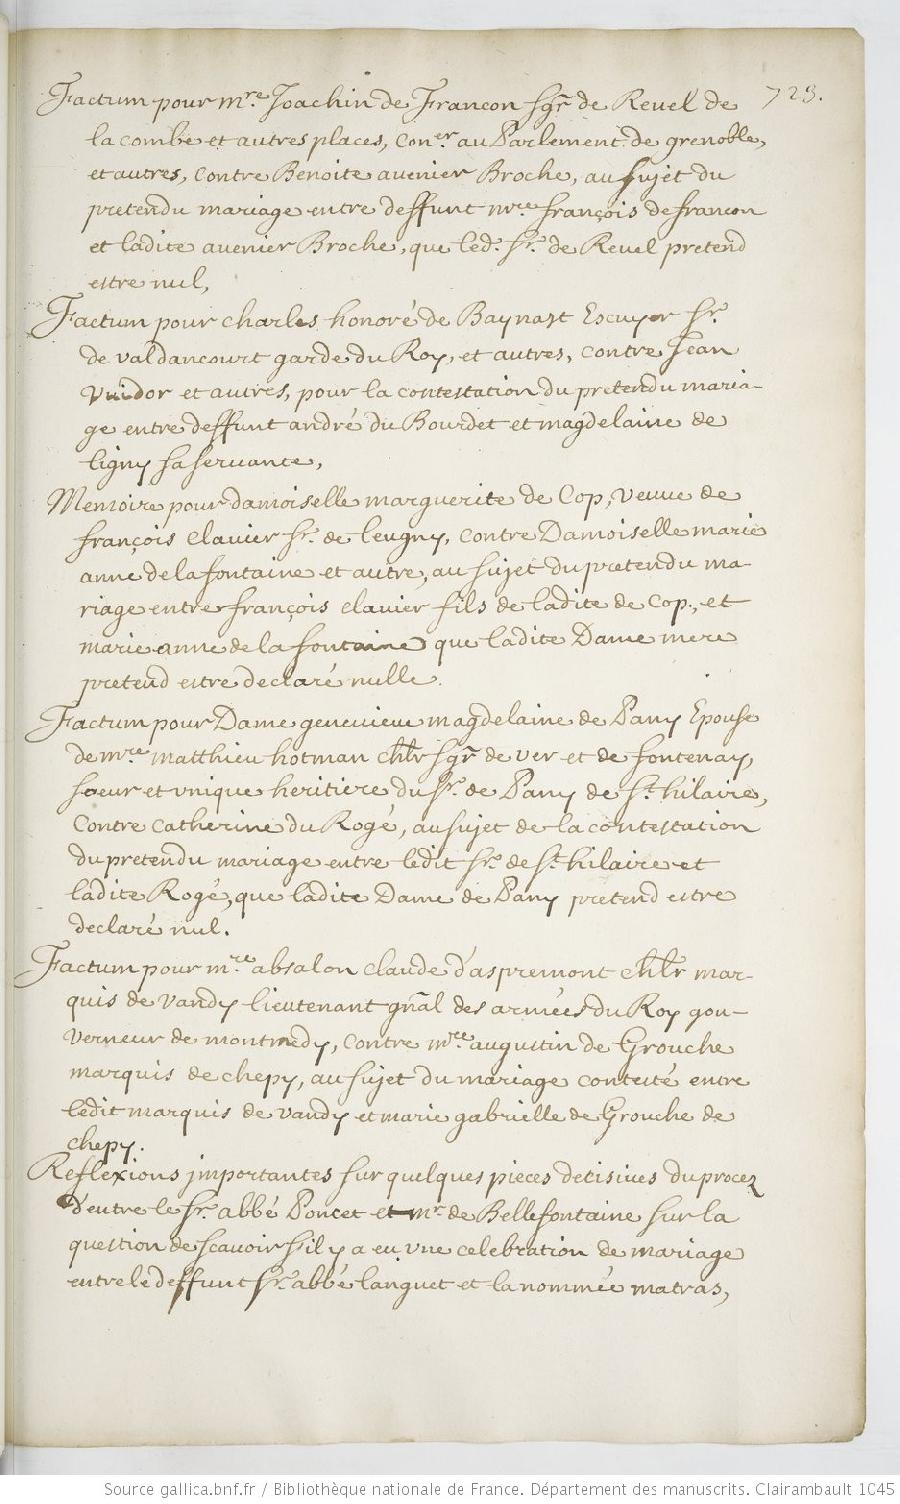 723.
Factum pour mre Joachin de Francon sgr de Revel de
la combe et autres places, coner au Parlement de grenoble,
et autres, contre Benoite avenier Broche, au sujet du
pretendu mariage entre deffunt mre françois de francon
et ladite avenier Broche, que led. Sr. de Revel pretend
estre nul,
Factum pour charles honoré de Baynast Escuyer Sr.
de valdancourt garde du Roy, et autres, contre Jean
et autres, pour la contestation du pretendu maria-
ge entre deffunt andré du Bourdet et magdelaine de
ligny sa servante,
Memoire pour damoiselle marguerite de Cop, veuve de
françois clavier Sr. de leugny, contre Damoiselle marie
anne de la fontaine et autre, au sujet du pretendu ma-
riage entre françois clavier fils de ladite de Cop, et
marie anne de la fontaine que ladite Dame mere
pretend estre declaré nulle.
Factum pour Dame genevieve magdelaine de Pany Epouse
de mre matthieu hotman chlr sgr de ver et de fontenay,
soeur et vnique heritiere du Sr. de Pany de St. hilaire,
contre catherine du Rogé, au sujet de la contestation
du pretendu mariage entre ledit Sr. de St. hilaire et
ladite Rogé, que ladite Dame de Pany pretend estre
declaré nul.
Factum pour mre absalon claude d'aspremont chlr mar-
quis de vandy lieutenant gnal des armées du Roy gou-
verneur de montmedy, contre mre augustin de Grouche
marquis de chepy, au sujet du mariage contesté entre
ledit marquis de vandy et marie gabrielle de Grouche de
chepy.
Reflexions jmportantes sur quelques pieces decisives du procez
d'entre le Sr. abbé Poncet et mr. de Bellefontaine sur la
question de scavoir s'il y a eu vne celebration de mariage
entre le deffunt Sr. abbé languet et la nommée matras,
Source gallica.bnf.fr / Bibliothèque nationale de France. Département des manuscrits. Clairambault 1045